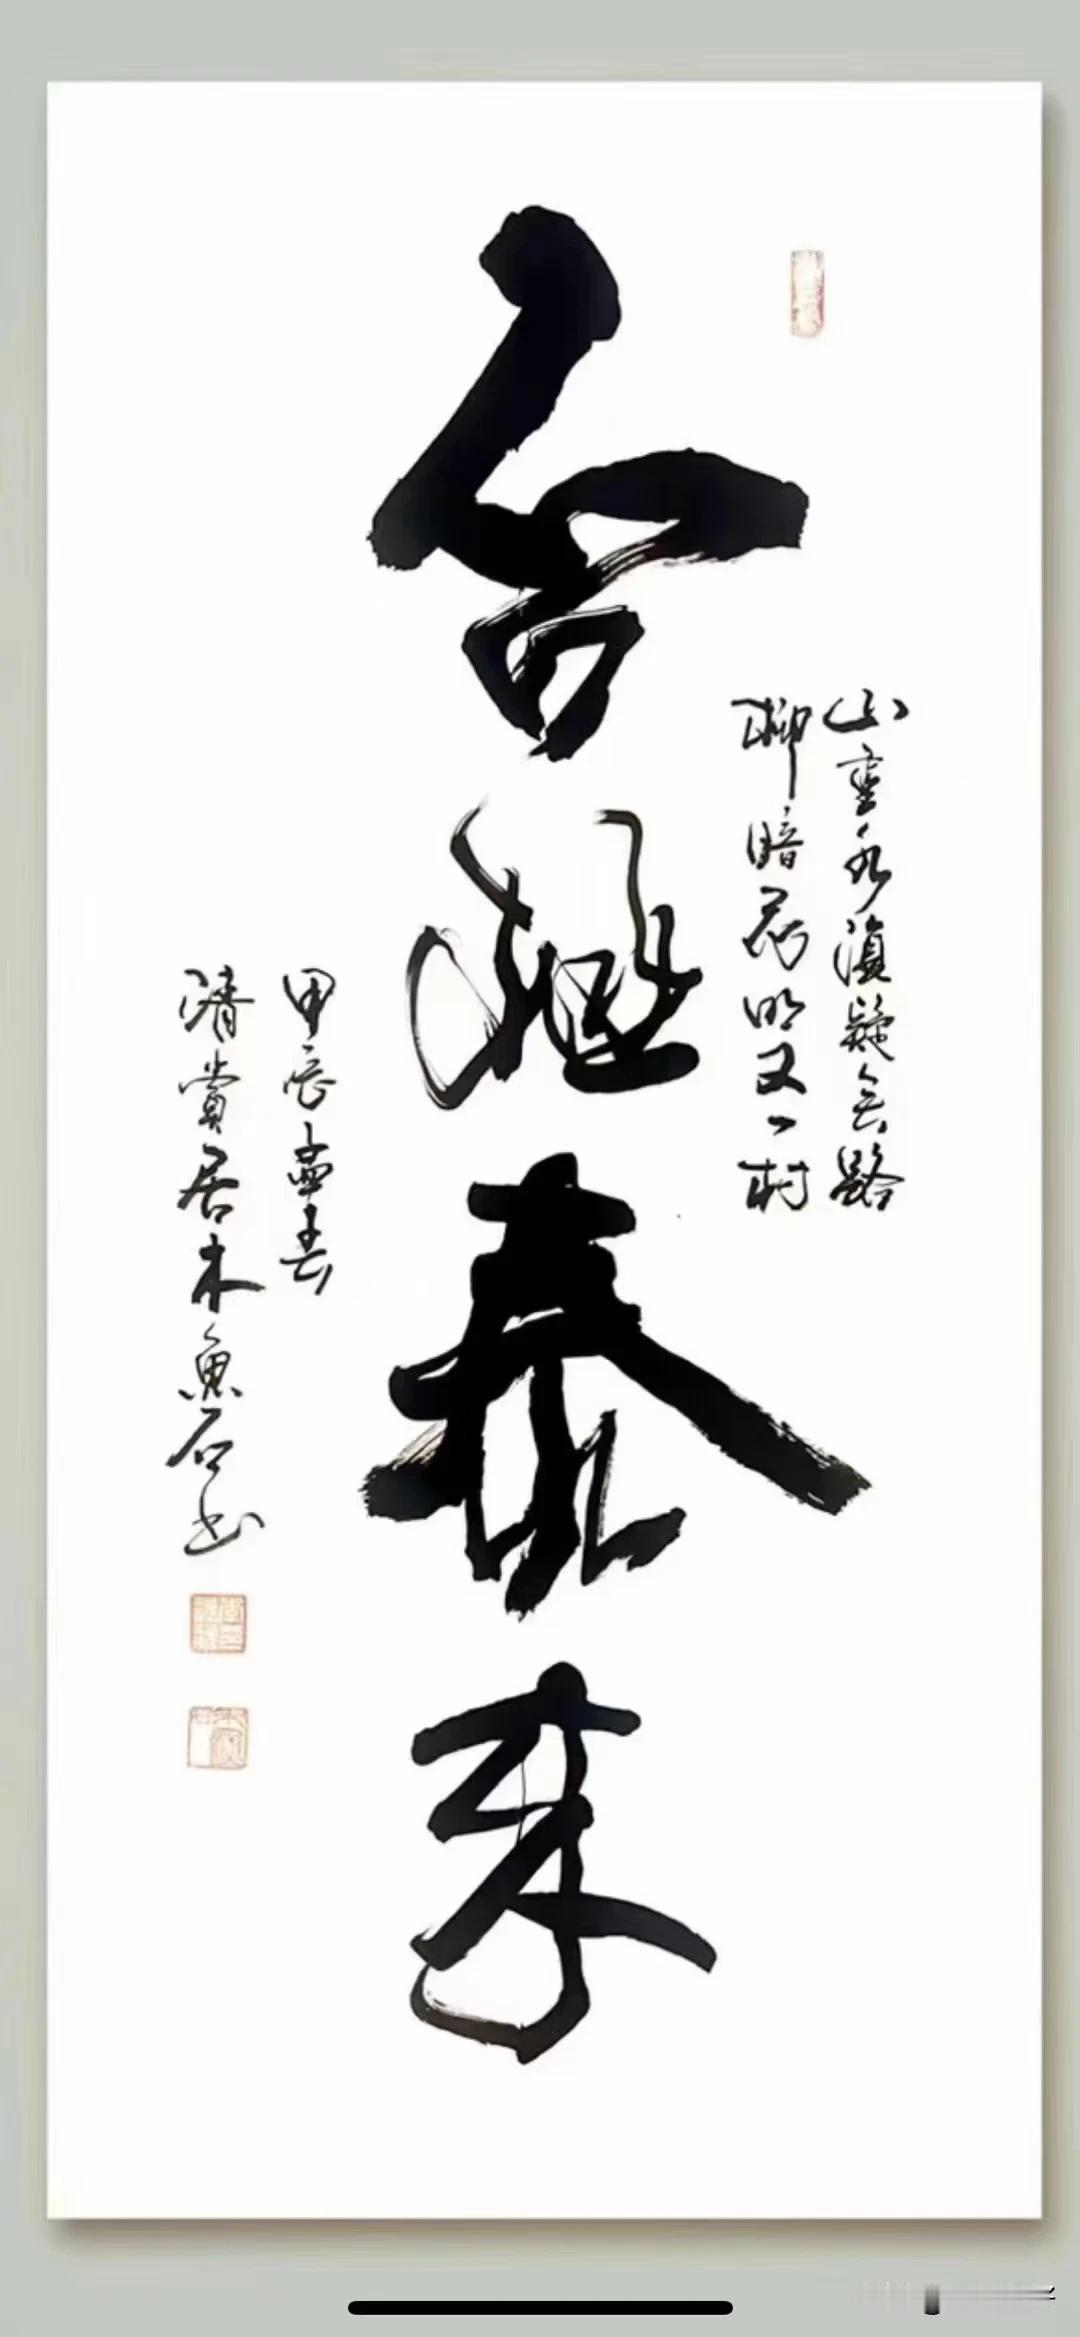 山重水復疑無路
柳暗花明又一村
否極泰來
甲辰孟春
清賞居木魚石书